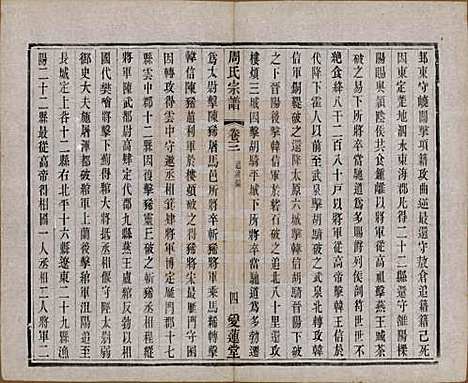 郢東守嶢關擊項籍攻曲逆最還守敖倉追籍籍已死
因東定楚地泗水東海郡凡得二十二縣還守雒陽櫟
陽賜與潁陰侯共食鍾離以將軍從高帝擊燕王臧荼
破之易下所將卒當馳道為多賜爵列侯剖符世世不
絕食絳八千二百八十戶以將軍從高帝擊韓王信於
代降下霍人以前至武泉擊胡騎破之武泉北轉攻韓
信軍銅鞮破之還降太原六城擊韓信胡騎晉陽下破之
下晉陽後擊韓信軍於硰石破之追北八十里還攻
樓煩三城因擊胡騎平城下所將卒當馳道為多勃遷
周氏宗譜 卷三 四 愛蓮堂
為太尉擊陳豨屠馬邑所將卒斬豨將軍乘馬絺擊韓
信陳豨趙利軍於樓煩破之得豨將宋最雁門守圂因
轉攻得雲中守遬丞相箕肆將軍博定雁門郡十七
縣雲中郡十二縣因復擊豨靈丘破之斬豨丞相程縱
將軍陳武都尉高肆定代郡九縣燕王盧綰反勃以相
國代樊噲將擊下薊得綰大將抵丞相偃守陘太尉弱
御史大夫施屠渾都破綰軍上蘭後擊綰軍沮陽追至
長城定上谷十二縣右北平十六縣遼東二十九縣漁
陽二十二縣最從高帝得相國一人丞相二人將軍二